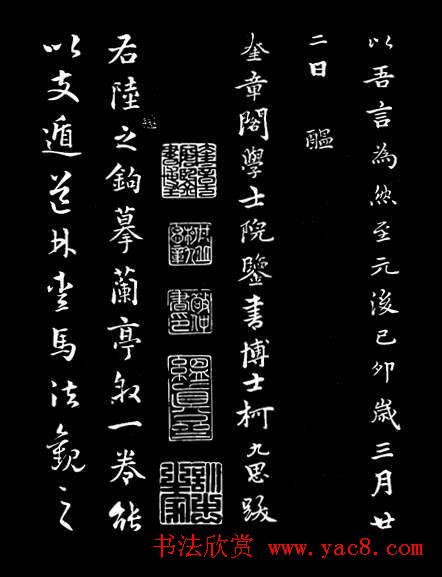 以吾言為然至元後己卯歲三月廿
二日
醖
奎章閣學士院鑒書博士柯九思跋
縕真齋
右陸之鉤摹蘭亭敘一卷能
以支遁道林愛馬法觀之
书法欣赏 www.yac8.com